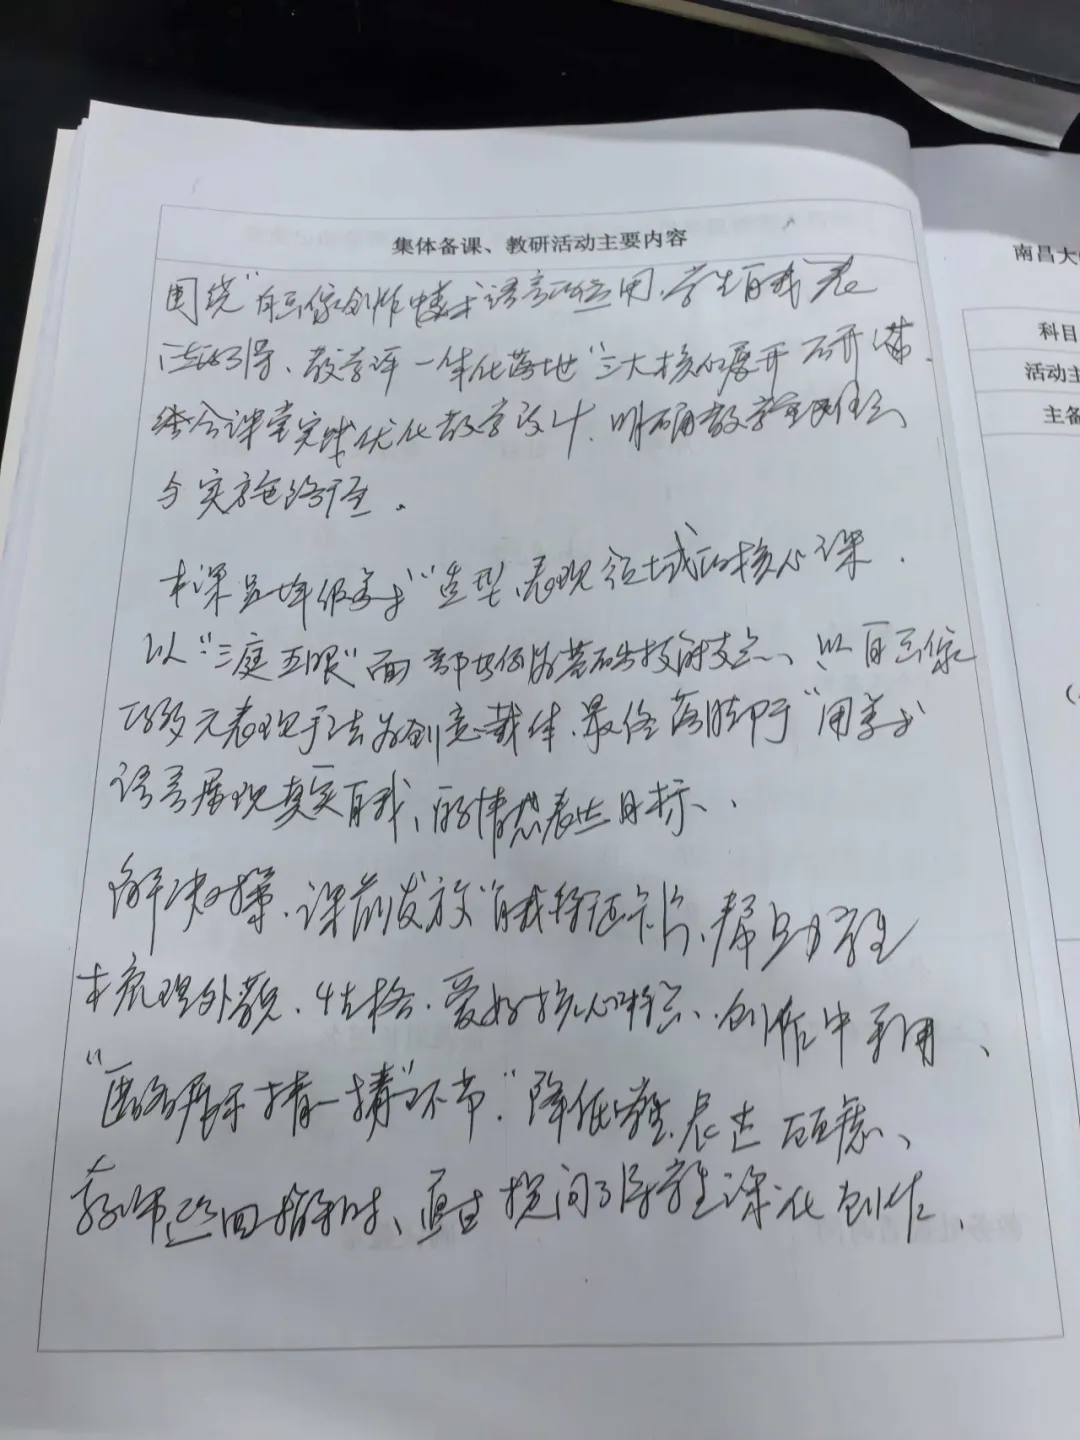 集体备课、教研活动主要内容
围绕“自画像创作中美术语言的运用、学生自我表
达的引导、教学评一体化落地”三大核心展开研讨、
结合课堂实践优化教学设计、明确教学重难点
与实施路径.
本课是年级美术“造型、表现领域的核心课.
以“三庭五眼”面部比例为基础技能支点、以自画像
的多元表现手法为创意载体.最终落脚于“用美术
语言展现真实自我、的情感表达目标、.
解决对策、课前发放“自我特征卡片、帮助学生
本梳理外貌.性格.爱好核心特点、创作中利用、
“匿名展示猜一猜”环节.“降低学生表达顾虑、
教师巡回指导时、通过提问引导学生深化创作、
南昌大
科目
活动主
主备